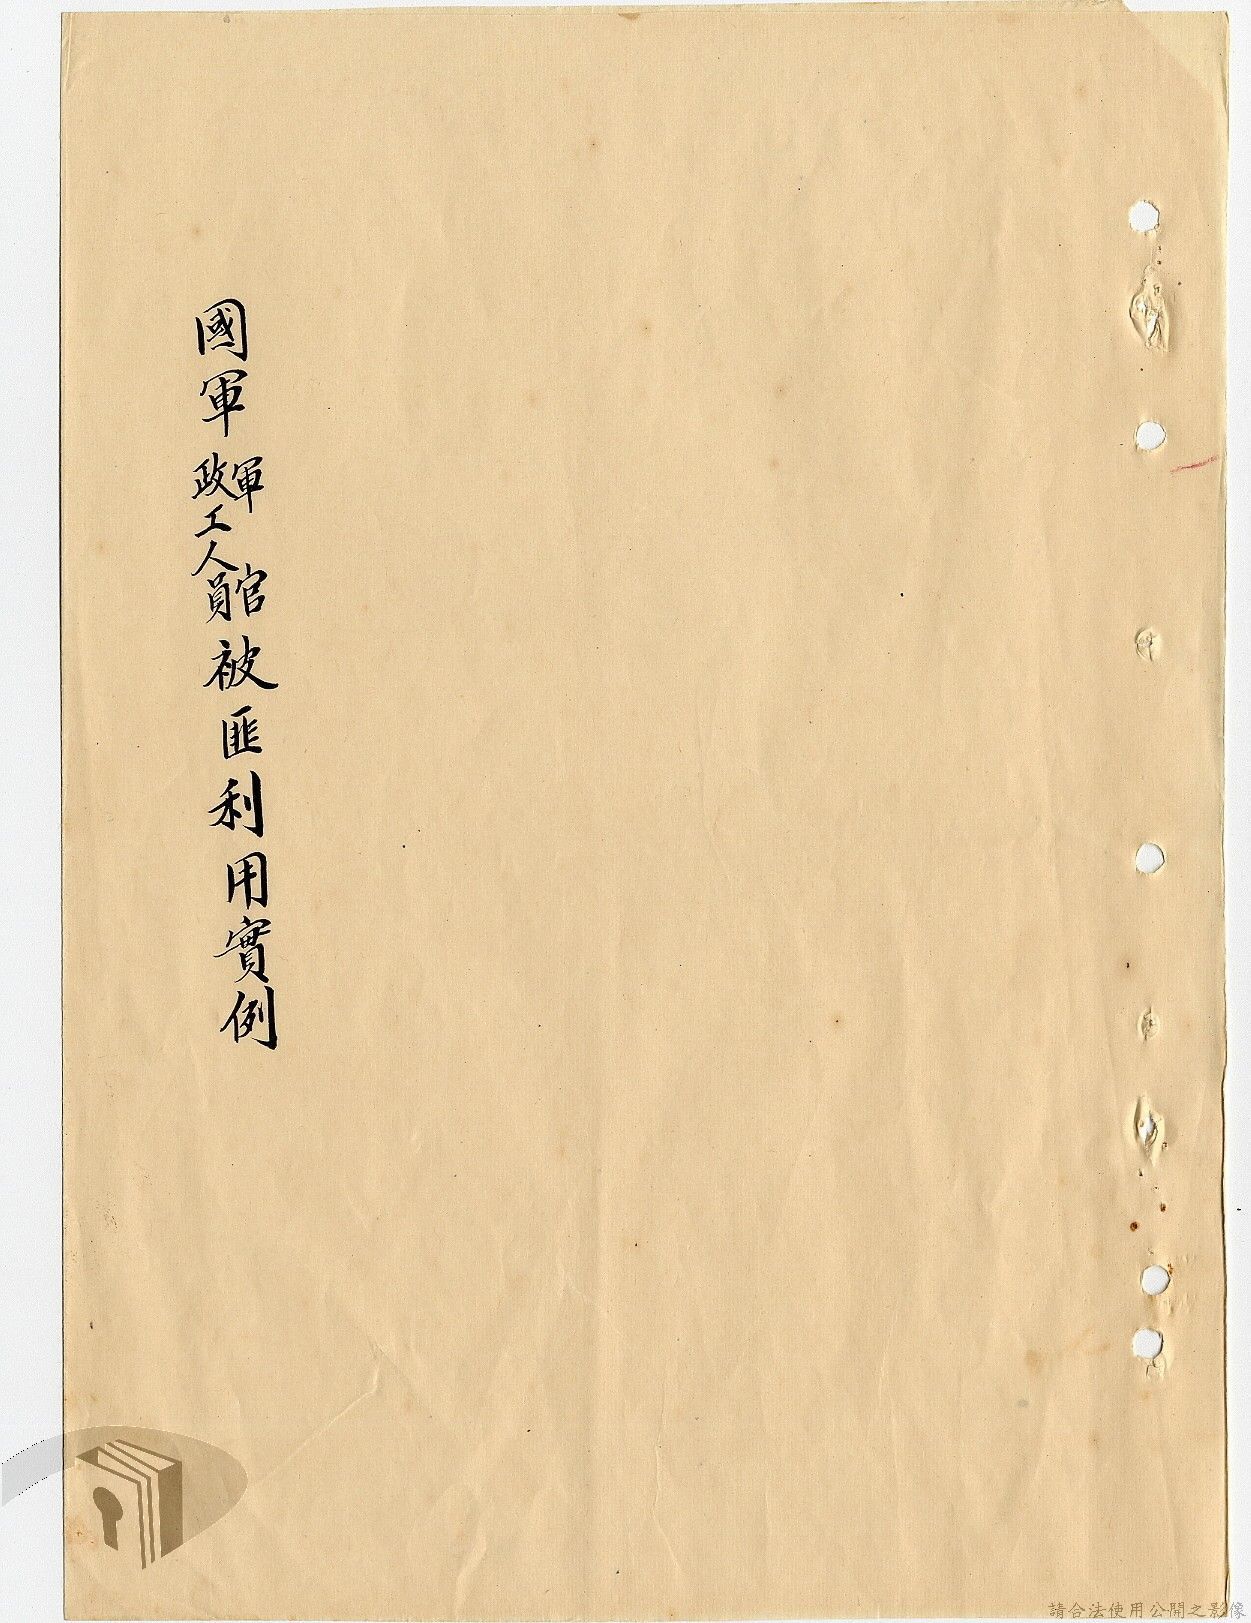 國軍軍官政工人員被匪利用實例
請合法使用公開之影像